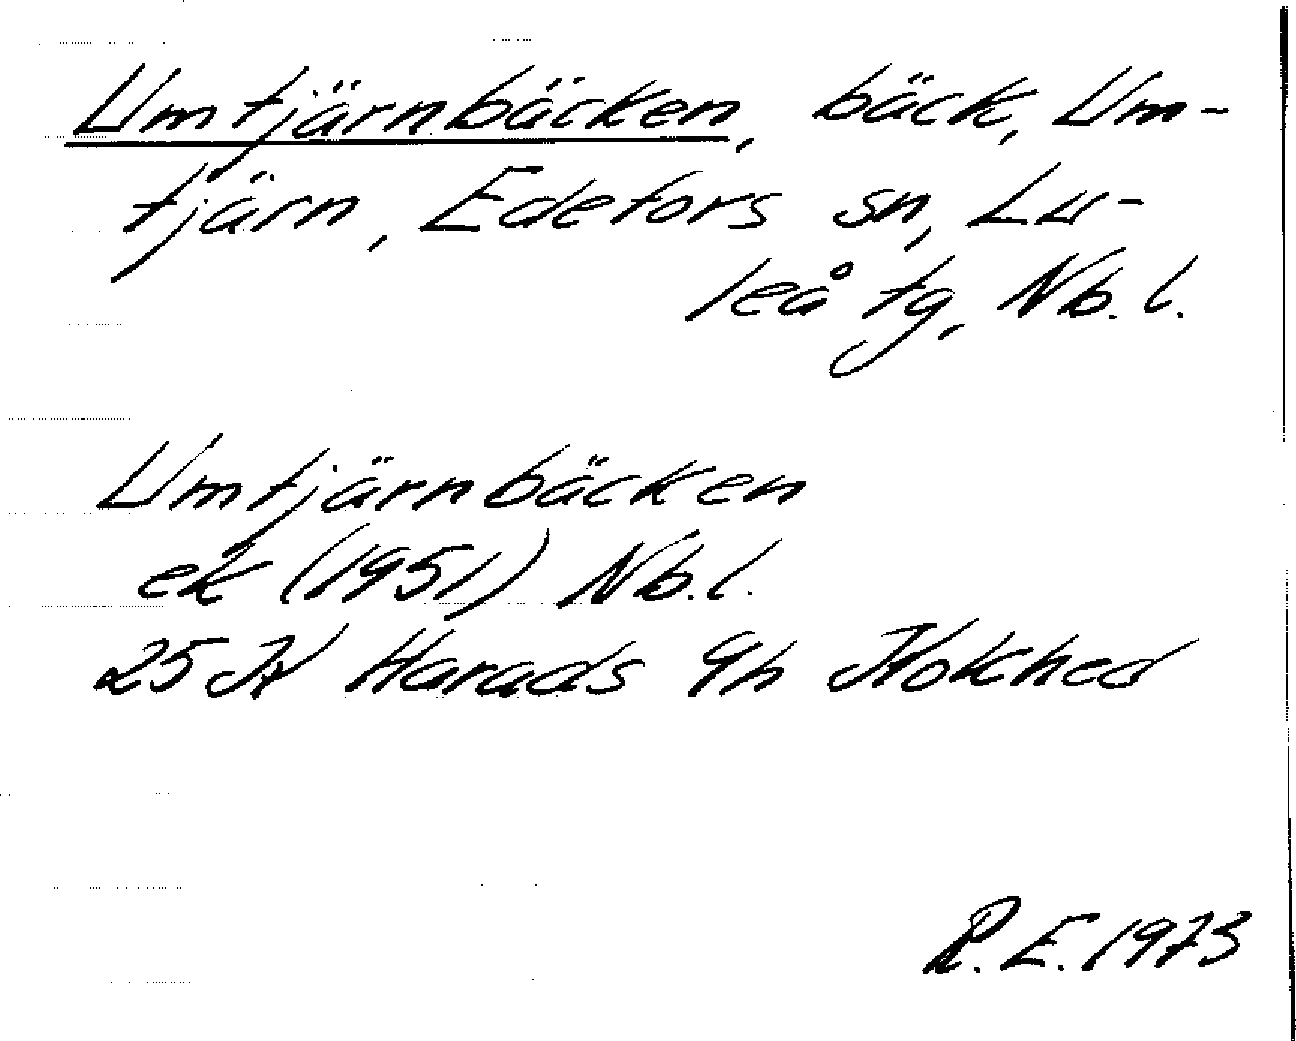 Umtjärnbäcken, bäck, Um-
tjärn, Edefors sn, Lu-
leå tg, Nb. l.
Umtjärnbäcken
ek (1951) Nb. l.
25 K Harads 9h Klokhed
R. E. 1973